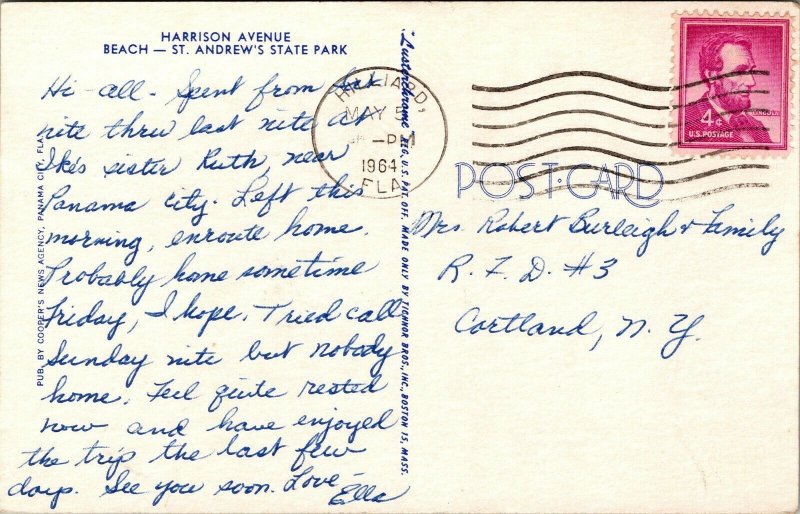 HARRISON AVENUE
BEACH — ST. ANDREW'S STATE PARK
Hi-all- Spent from
nite thru last nite at
Ike's sister Ruth, near
Panama City. Left this
morning, enroute home.
Probably home sometime
Friday, I hope. Tried call
Sunday nite but nobody
home. Feel quite rested
now and have enjoyed
the trip the last few
days. See you soon. Love-
Ella
PUB. BY COOPER'S NEWS AGENCY, PANAMA CITY, FLA.
"Lusterchrome" REG. U.S. PAT. OFF. MADE ONLY BY TICHNOR BROS., INC., BOSTON 15, MASS.
HILLIARD,
MAY
-PM
1964
FLA
4¢
LINCOLN
U.S. POSTAGE
POST CARD
Mrs. Robert Burleigh & Family
R.F.D. #3
Cortland, N.Y.